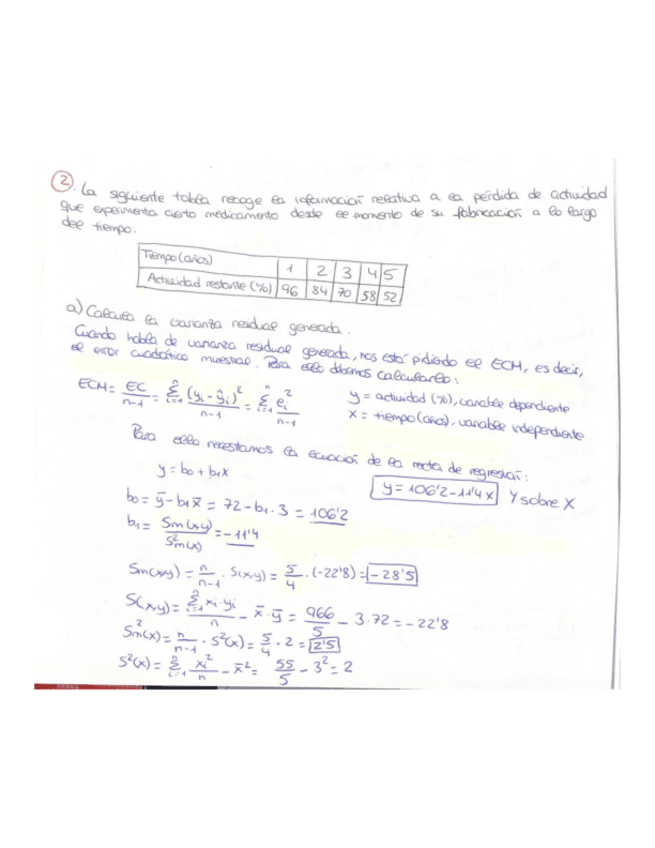 2. La siguiente tabla recoge la información relativa a la pérdida de actividad
que experimenta cierto medicamento desde el momento de su fabricación a lo largo
del tiempo:
Tiempo (años) 1 2 3 4 5
Actividad restante (%) 96 84 70 58 52
a) Calcula la varianza residual generada.
Cuando habla de varianza residual generada, nos está pidiendo el ECM, es decir,
el error cuadrático muestral. Para ello debemos calcularlo:
ECM = EC/n-1 = Σⁿᵢ₌₁ (yi - ŷi)²/n-1 = Σⁿᵢ₌₁ ei²/n-1
y = actividad (%), variable dependiente
x = tiempo (años), variable independiente
Para ello necesitamos la ecuación de la recta de regresión:
y = b0 + b1x
y = 106'2 - 11'4x Y sobre X
b0 = ȳ - b1x̄ = 72 - b1 · 3 = 106'2
b1 = Sm(x,y)/S²m(x) = -11'4
Sm(x,y) = n/n-1 · S(x,y) = 5/4 · (-22'8) = -28'5
S(x,y) = Σⁿᵢ₌₁ xi·yi/n - x̄·ȳ = 966/5 - 3·72 = -22'8
S²m(x) = n/n-1 · S²(x) = 5/4 · 2 = 2'5
S²(x) = Σⁿᵢ₌₁ xi²/n - x̄² = 55/5 - 3² = 2